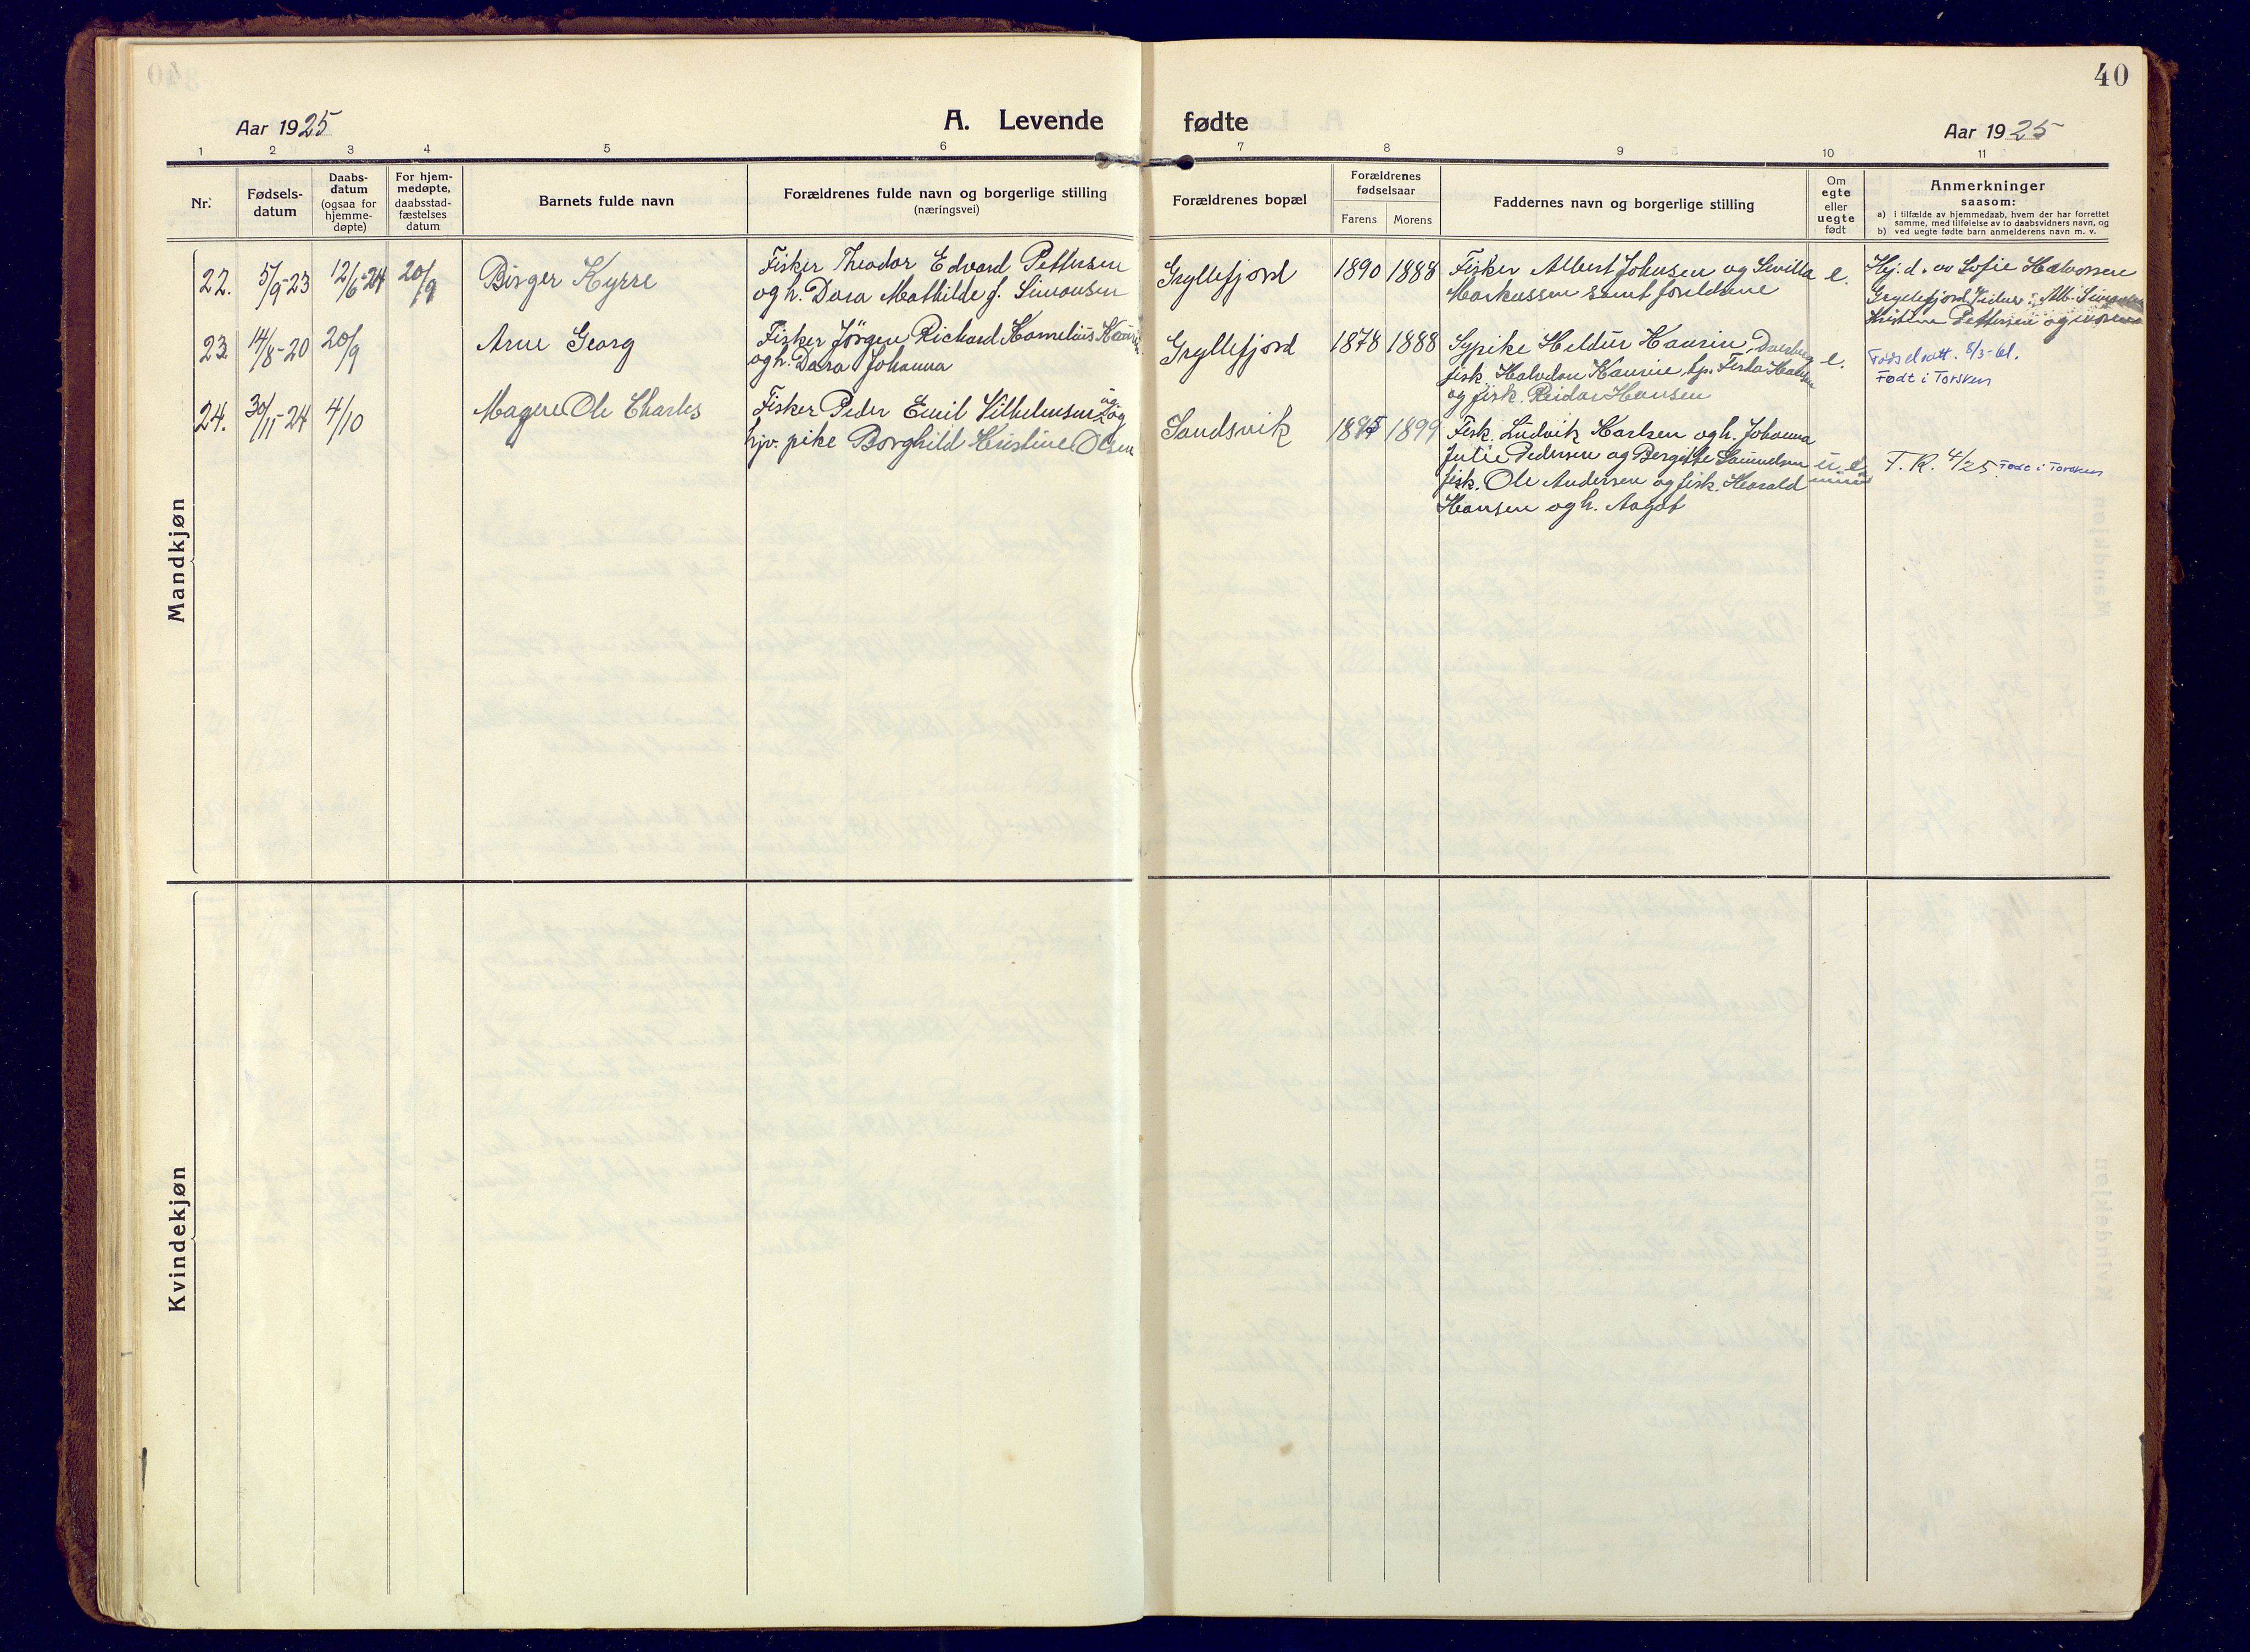 40
Aar 1925
A. Levende fødte
Aar 1925
1 2 3 4 5 6 7 8 9 10 11
Nr.
Fødsels-
datum
Daabs-
datum
(ogsaa for
hjemme-
døpte)
For hjem-
medøpte,
daabsstad-
fæstelses
datum
Barnets fulde navn
Forældrenes fulde navn og borgerlige stilling
(næringsvei)
Forældrenes bopæl
Forældrenes
fødselsaar
Farens Morens
Faddernes navn og borgerlige stilling
Om
egte
eller
uegte
født
Anmerkninger
saasom:
a) i tilfælde av hjemmedaab, hvem der har forrettet
samme, med tilføielse av to daabsvidners navn, og
b) ved uegte fødte barn anmelderens navn m. v.
Mandkjøn
22. 5/9-23 12/6-24 20/9
Birger Kyrre
Fisker Theodor Edvard Pettersen
og h. Dora Mathilde f. Simonsen
Gryllefjord
1890 1888
Fisker Albert Johnsen og Sevilla
Markussen samt foreldrene
e.
Hj. d. av Sofie Halvorsen
Gryllefjord. Vidner: Alb. Simonsen
Kristine Pettersen og
23. 14/8-20 20/9
Arne Georg
Fisker Jörgen Richard Kornelius
og h. Dora Johanna
Gryllefjord
1878 1888
Sypike Heldur Kaurin,
fisk. Halvdan Kaurin, hp.
og fisk. Reidar Hansen
e.
Fødselsatt. 8/3-61.
Født i Torsken
24. 30/11-24 4/10
Magne Ole Charles
Fisker Peder Emil Vilhelmsen og
hjv. pike Borghild Kristine Olsen
Sandsvik
1895 1899
Fisk. Ludvik Karlsen og h. Johanna
Julie Pedersen og Bergitte Samuelsen
fisk. Ole Andersen og fisk. Harald
Hansen og h. Aagot
u. e.
T. R. 4/25 Født i Torsken
Kvindekjøn